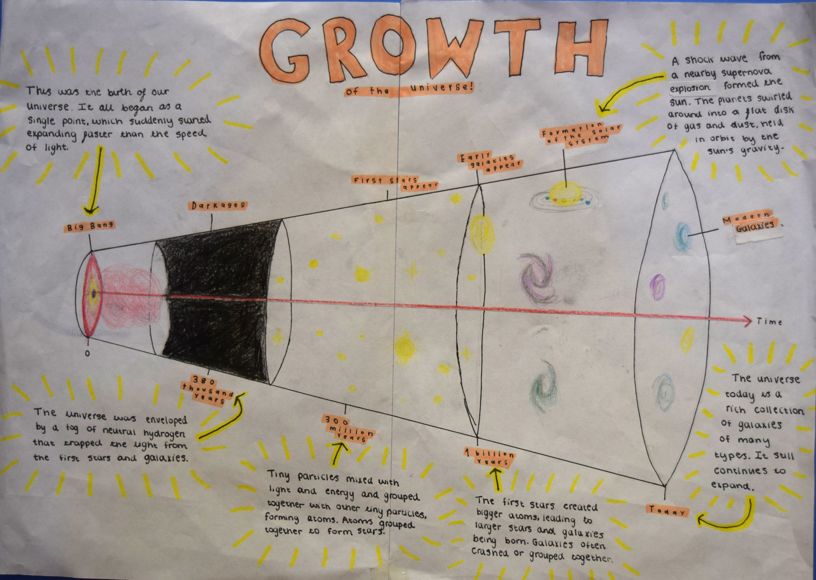 GROWTH
of the universe!
This was the birth of our
universe. It all began as a
single point, which suddenly started
expanding faster than the speed
of light.
A shock wave from
a nearby supernova
explosion formed the
sun. The planets swirled
around into a flat disk
of gas and dust, held
in orbit by the
sun's gravity.
Big Bang
Darkages
First Stars
appear
Early
galaxies
appear
Formation
of the Solar
System
Modern
Galaxies.
Time
0
380
thousand
years
300
million
years
1 billion
years
Today
The universe was enveloped
by a fog of neutral hydrogen
that trapped the light from
the first stars and galaxies.
Tiny particles mixed with
light and energy and grouped
together with other tiny particles,
forming atoms. Atoms grouped
together to form stars.
The first stars created
bigger atoms, leading to
larger stars and galaxies
being born. Galaxies often
crashed or grouped together.
The universe
today is a
rich collection
of galaxies
of many
types. It still
continues to
expand.